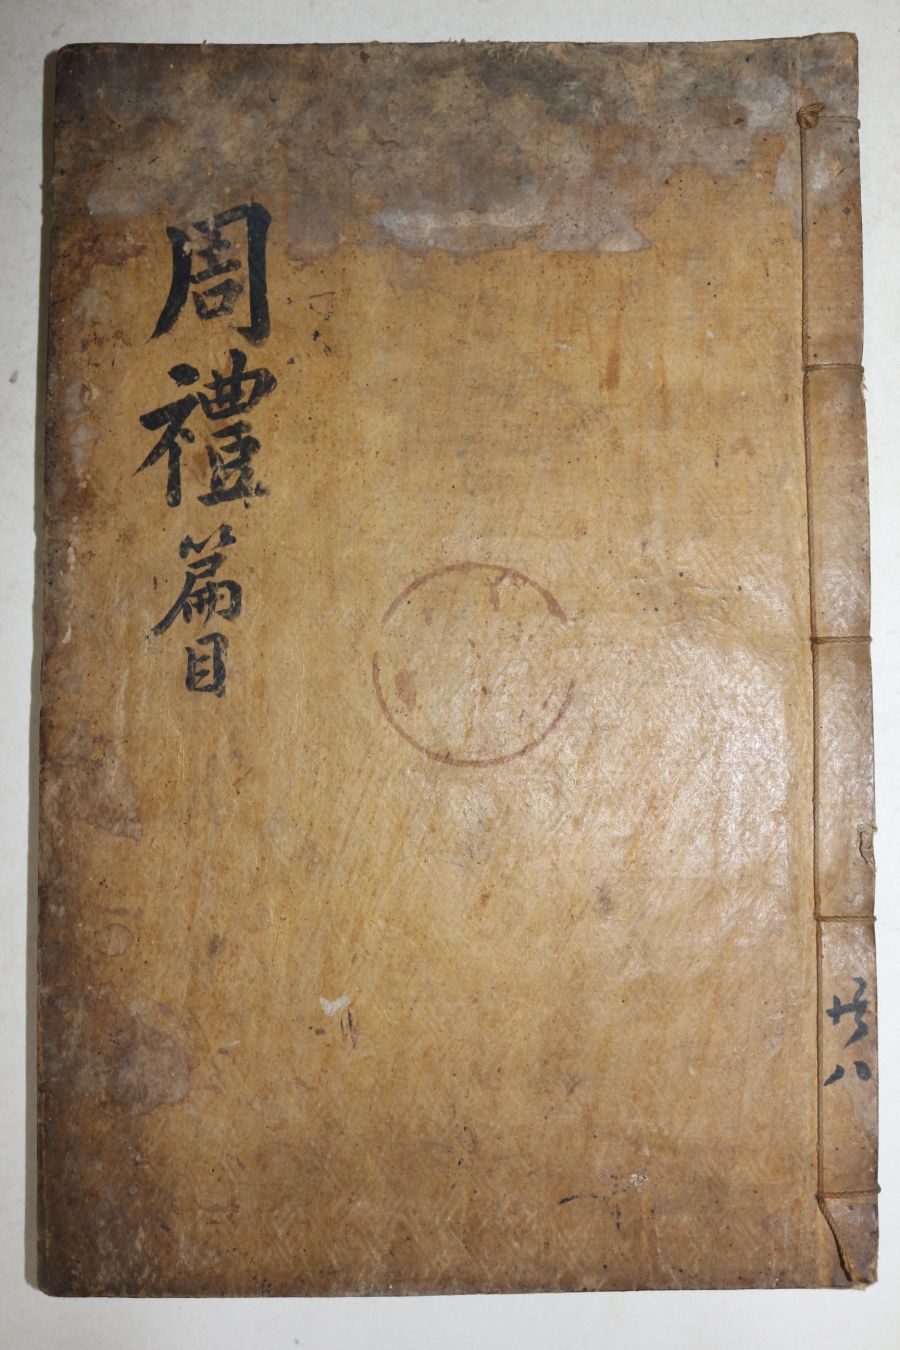 共八
周禮篇目